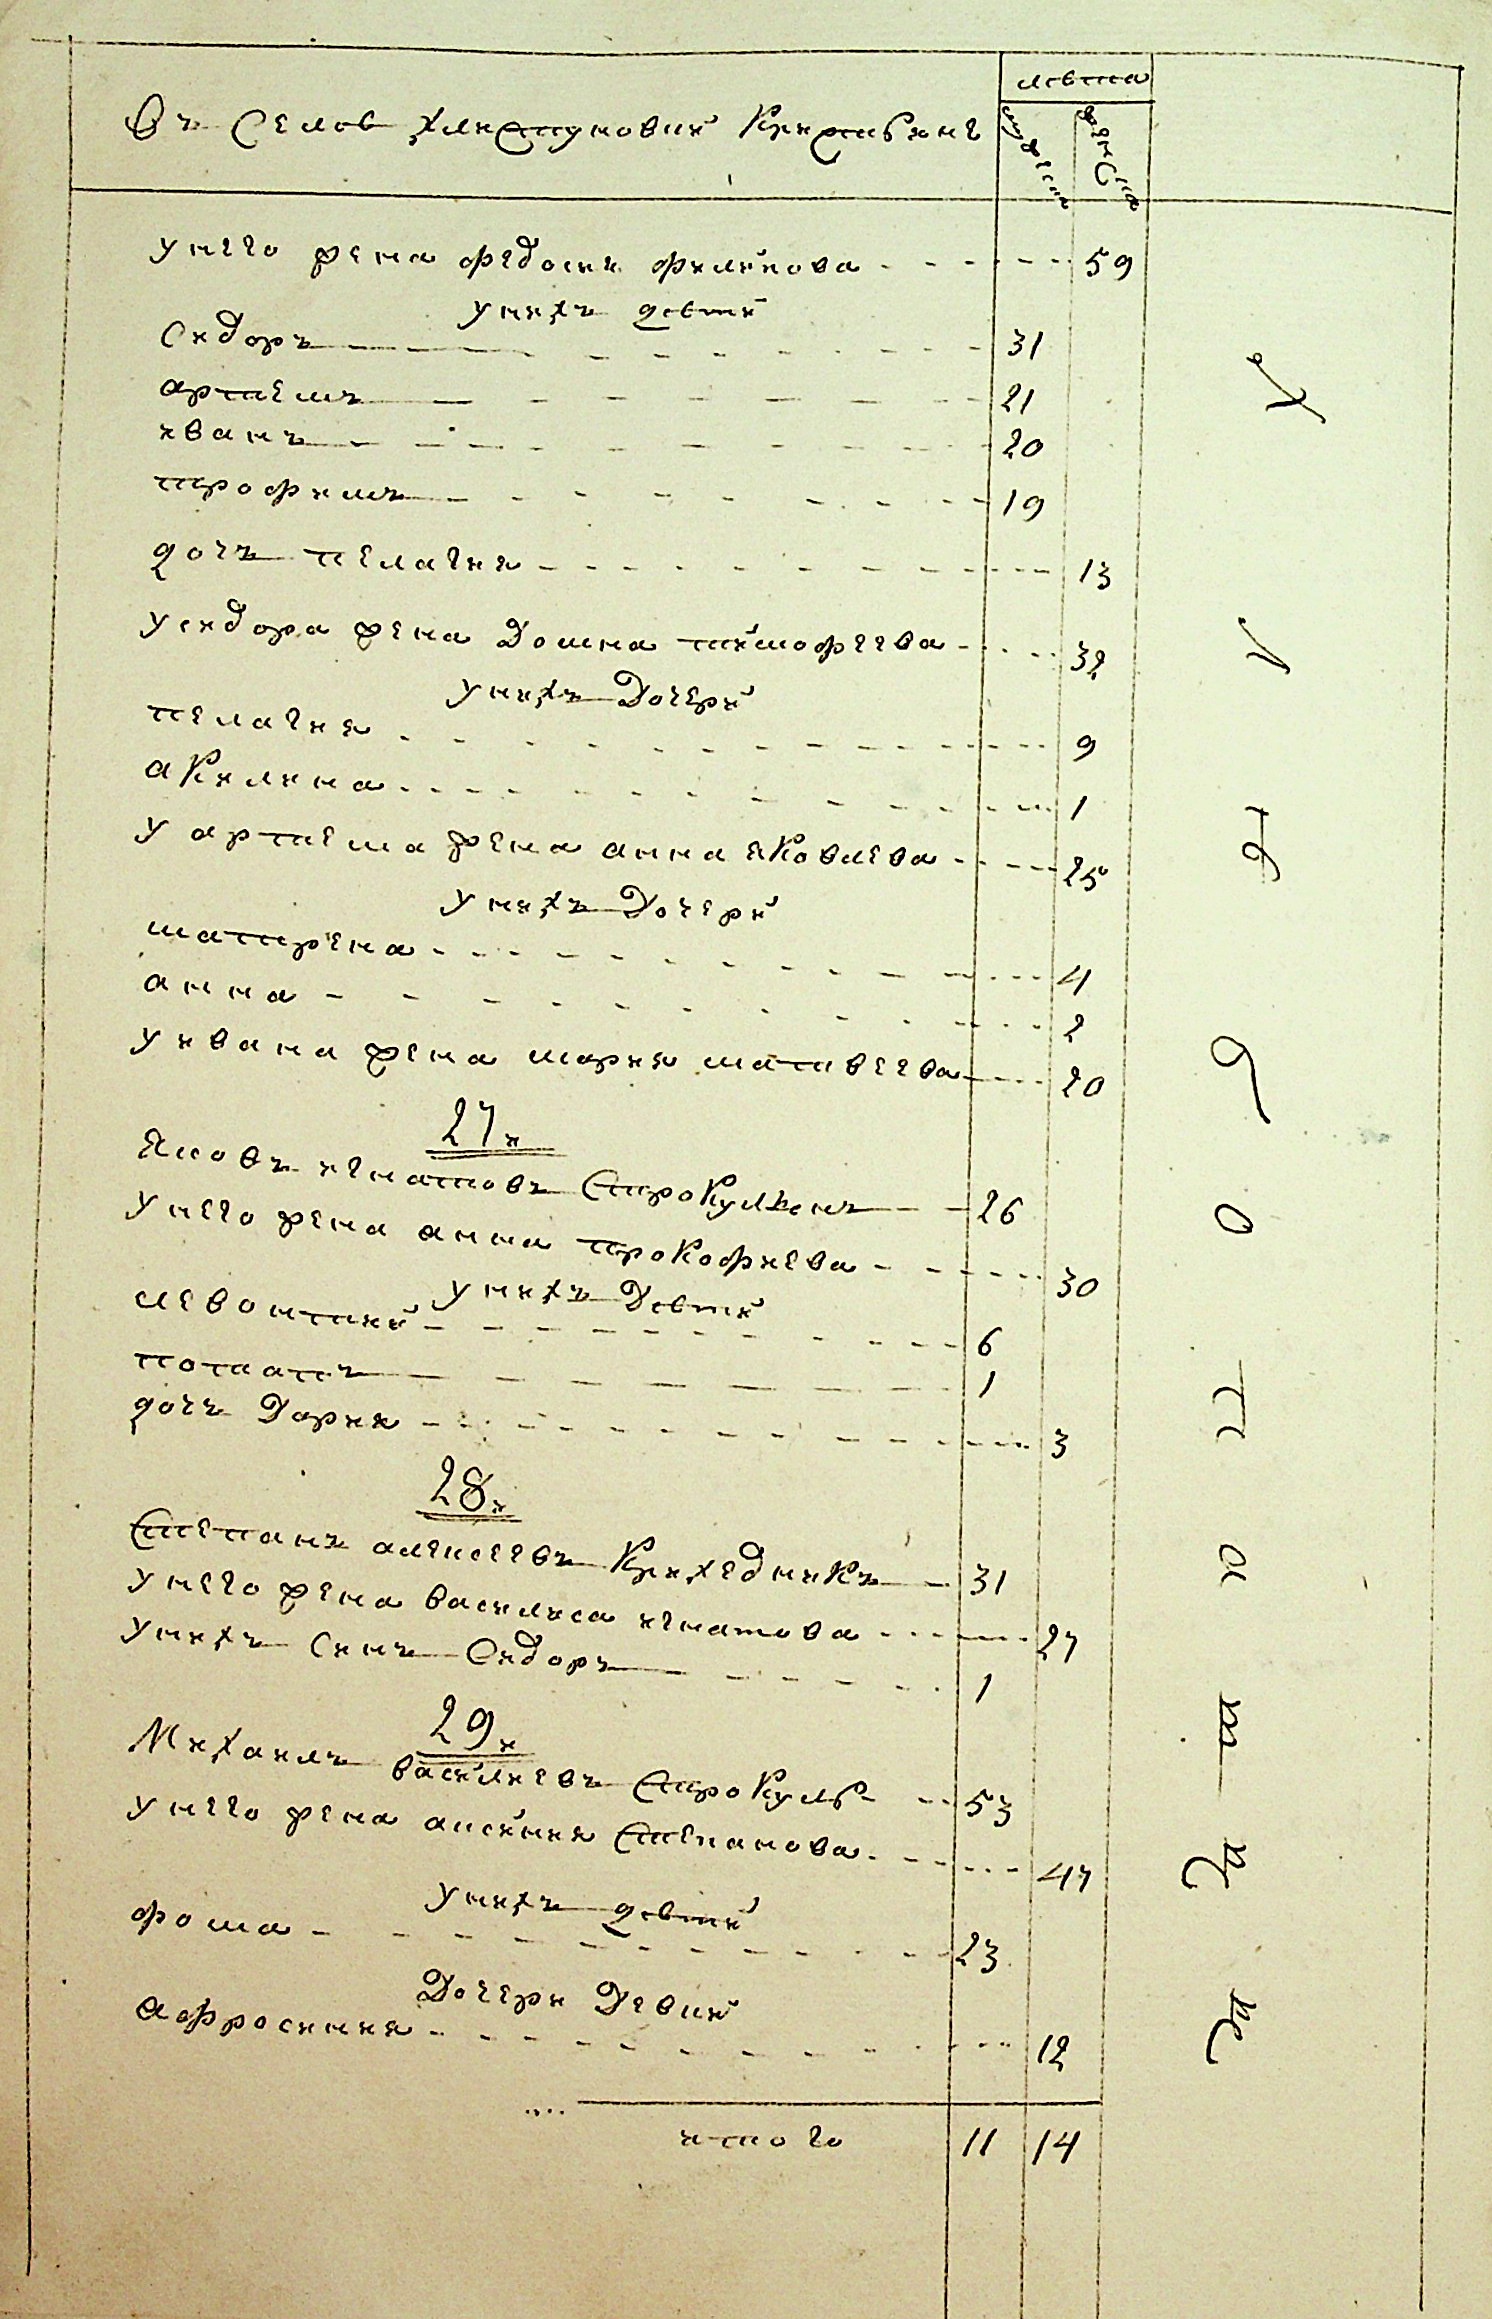 лѣта
Въ Селѣ Хлистуновки Кристиянѣ
мужеск женска
унего жена федосия филипова 59
унихъ дѣти
Сидоръ 31
артиемъ 21
иванъ 20
трофимъ 19
дочъ пелагия 13
усидора жена Домна тимофеева 32
унихъ Дочери
пелагия 9
акилина 1
у артиема жена анна яковлева 25
унихъ Дочери
матрена 4
анна 2
уивана жена мария матвеева 20
27й
Яковъ игнатовъ Строкулѣнъ 26
унего жена анна прокофиева 30
унихъ Дѣти
левонтий 6
потапъ 1
дочъ Дария 3
28й
Степанъ алексеевъ Крихедникъ 31
унего жена василиса игнатова 27
унихъ Синъ Сидоръ 1
29й
Михаилъ василиевъ Строкулъ 53
унего жена аксиния Степанова 47
унихъ дѣти
фома 23
Дочери Девки
афросиния 12
итого 11 14